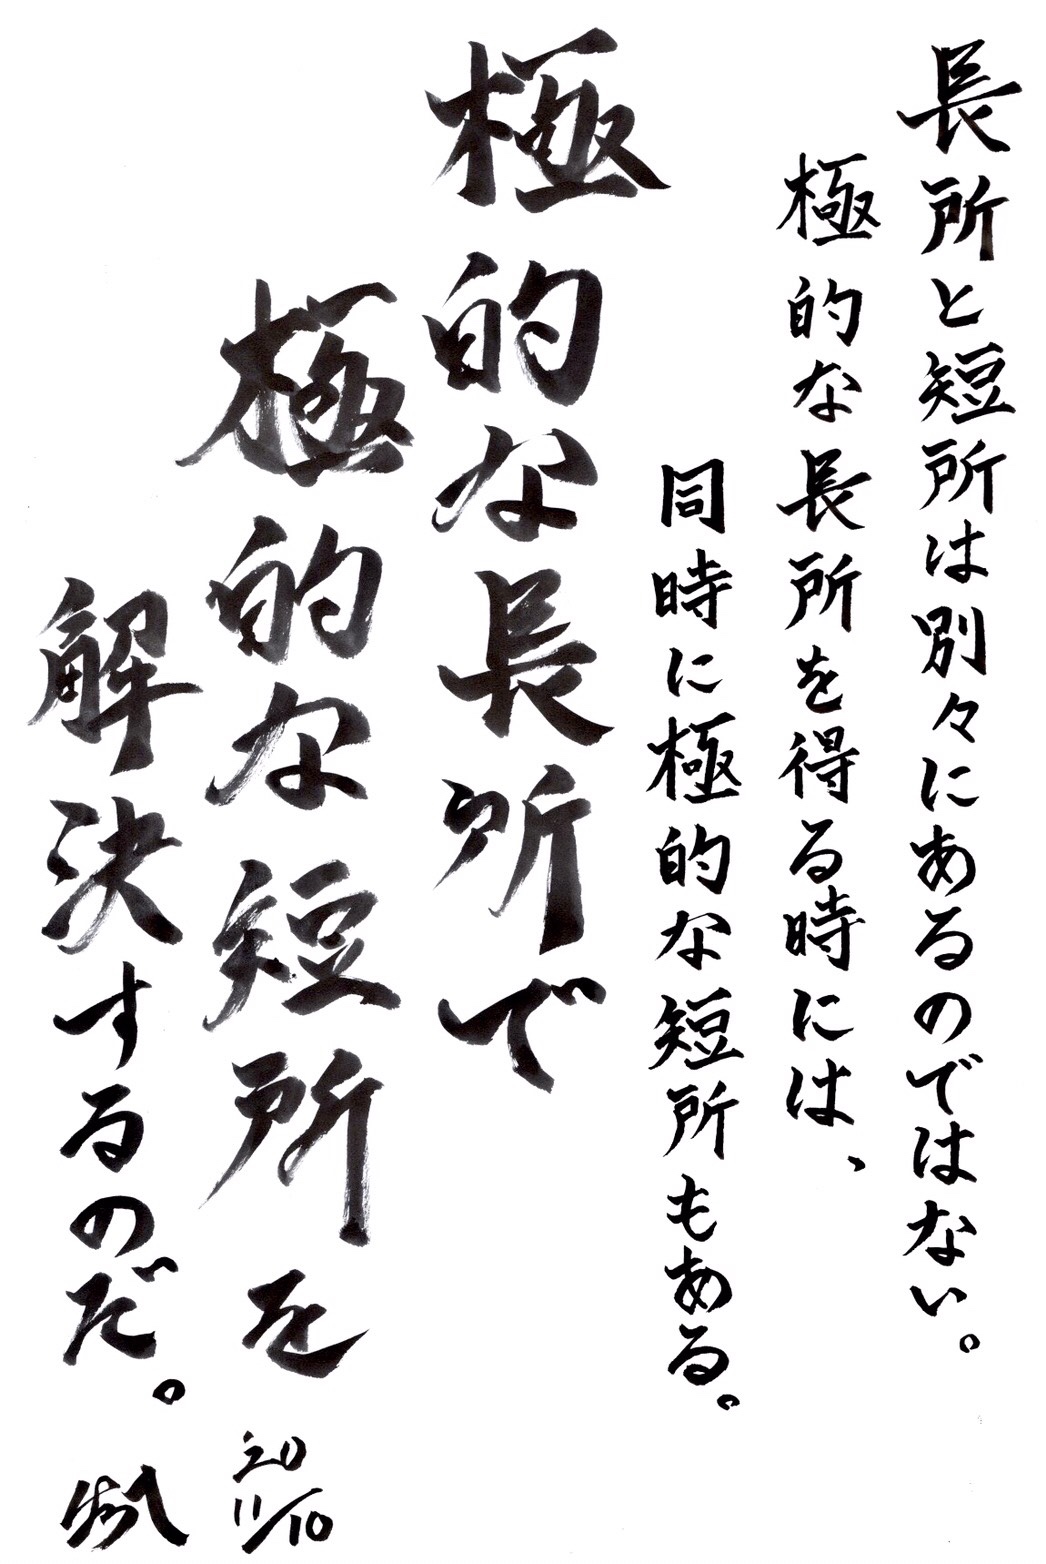 長所と短所は別々にあるのではない。
極的な長所を得る時には、
同時に極的な短所もある。
極的な長所で
極的な短所を
解決するのだ。
11/10